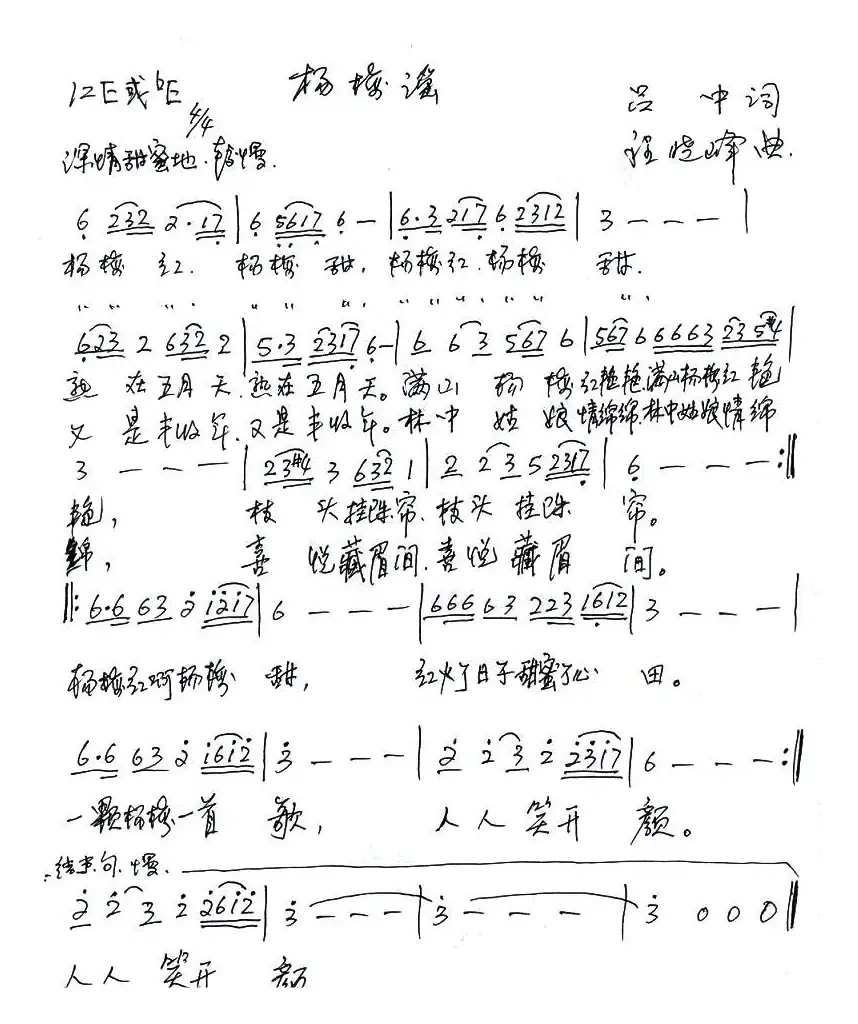 杨梅谣
1=E或bE 4/4
吕中词
深情甜蜜地.较慢.
程晓峰曲.
6 232 2·17 | 6 5617 6 — | 6·3 217 6 2312 | 3 — — — |
杨梅红. 杨梅甜, 杨梅红.杨梅甜.
" " " . " " " , " " " " " " .
623 2 632 2 | 5·3 2317 6 — | 6 6 3 567 6 | 567 6 6663 235#4 |
熟在五月天.熟在五月天。满山杨梅红艳艳,满山杨梅红艳
又是丰收年.又是丰收年。林中姑娘情绵绵.林中姑娘情绵
3 — — — | 23#4 3 632 1 | 2 2 3 5 2317 | 6 — — — :‖
艳, 枝头挂珠帘.枝头挂珠帘。
绵, 喜悦藏眉间.喜悦藏眉间。
‖: 6·6 63 2 1217 | 6 — — — | 666 63 223 1612 | 3 — — — |
杨梅红啊杨梅甜, 红火了日子甜蜜了心田。
6·6 63 2 1612 | 3 — — — | 2 2 3 2 2317 | 6 — — — :‖
一颗杨梅一首歌, 人人笑开颜。
结束句.慢.
2 2 3 2 2612 | 3 — — — | 3 — — — | 3 0 0 0 ‖
人人笑开颜